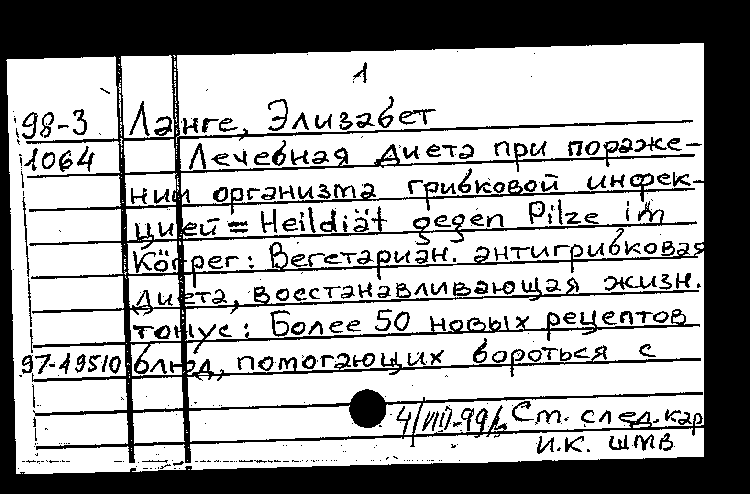 1
98-3 Ланге, Элизабет
1064 Лечебная диета при пораже-
нии организма грибковой инфек-
цией = Heildiät gegen Pilze im
Körper: Вегетариан. антигрибковая
диета, восстанавливающая жизн.
тонус: Более 50 новых рецептов
97-49510 блюд, помогающих бороться с
4/VIII-99г. См. след. кар
И.К. ШМВ